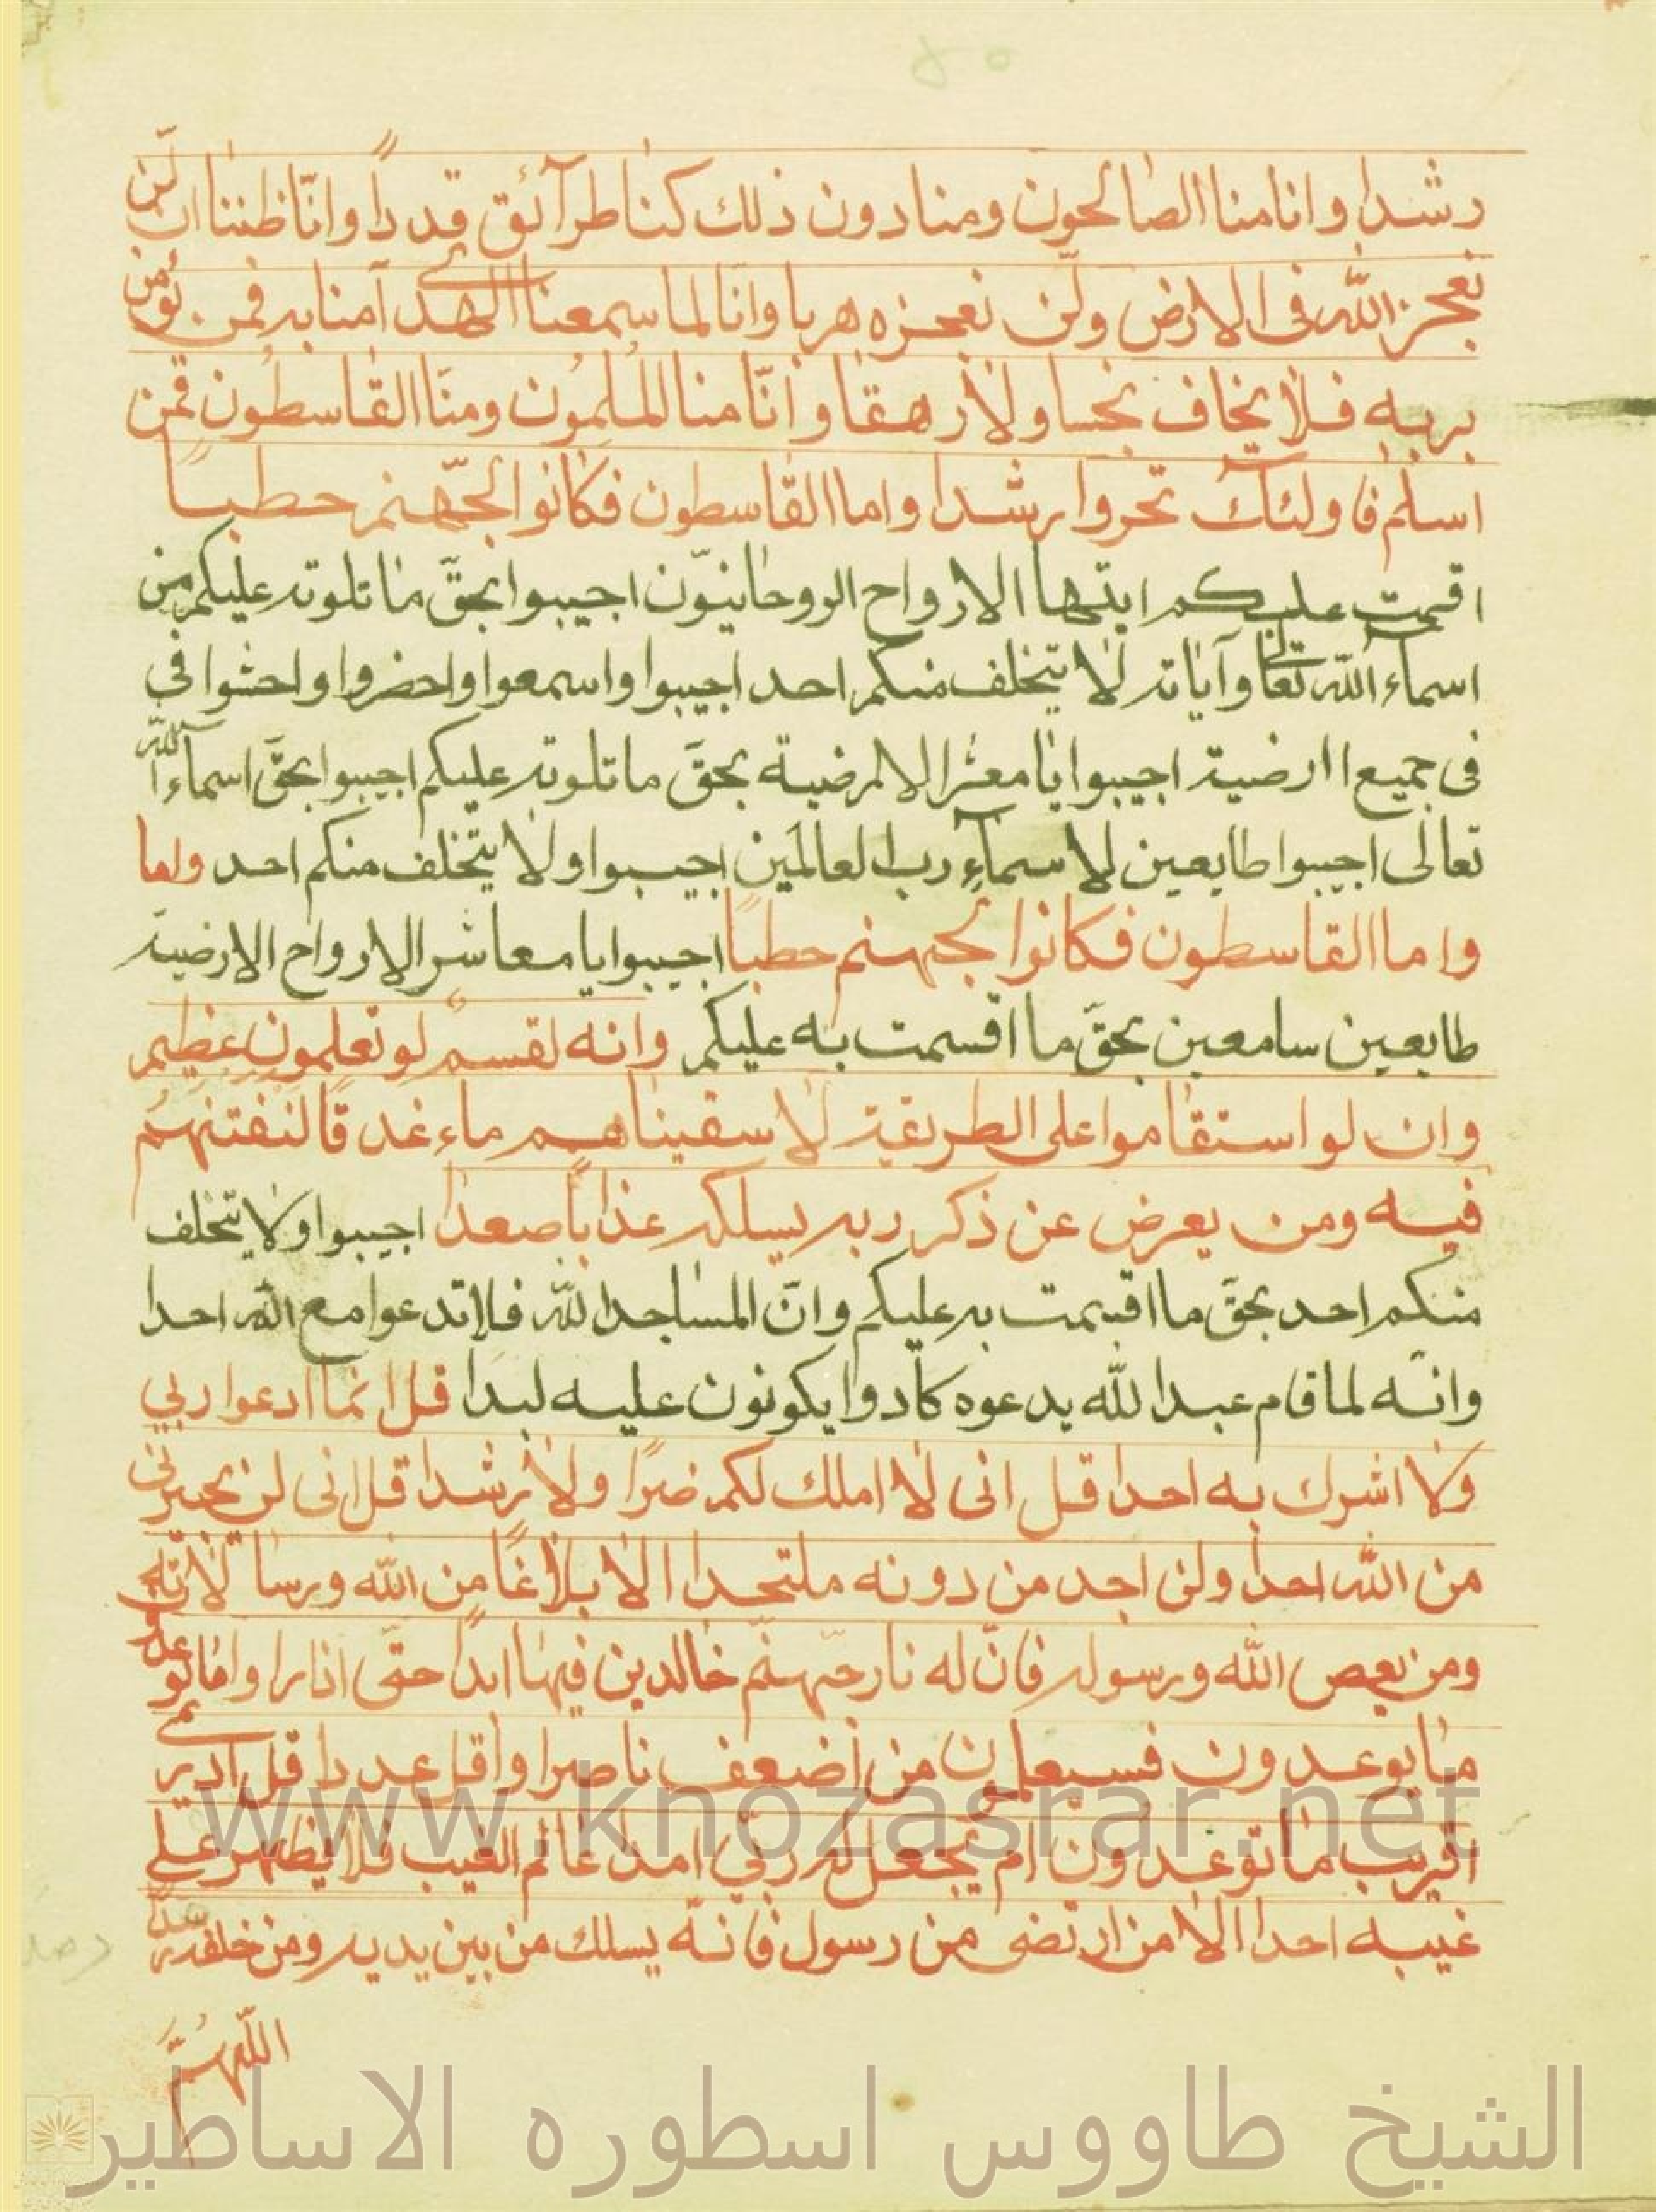 رشدا وانا منا الصالحون ومنا دون ذلك كنا طرآئق قددًا وانّا ظننا ان لّن
نعجز اللّه فى الارض ولّن نعجزه هربا وانّا لما سمعنا الهدى آمنا به فمن يؤمن
بربه فلا يخاف بخسا ولا رهقا وانّا منا المسلمون ومنّا القاسطون فمن
اسلم فاولئك تحروا رشدا واما القاسطون فكانوا لجهنم حطبًا
اقسمت عليكم ايتها الارواح الروحانيّون اجيبوا بحقّ ما تلوته عليكم من
اسماء اللّه تعالى وآياته لا يتخلف منكم احد اجيبوا واسمعوا واحضروا واحشوا فى
فى جميع اارضية اجيبوا يا معشر الالمرضية بحقّ ما تلوته عليكم اجيبوا بحقّ اسمآء اللّه
تعالى اجيبوا طايعين لاسمآءِ رب العالمَين اجيبوا ولا يتخلف منكم احد واما
واما القاسطون فكانوا لجهنم حطبًا اجيبوا يا معاشر الارواح الارضية
طايعين سامعين بحقّ ما اقسمت به عليكم وانه لقسم لو تعلمون عظيم
وان لو استقاموا على الطريقة لاسقيناهم ماء غدقًا لنفتنهُم
فيه ومن يعرض عن ذكر ربه يسلكه عذابًا صعدا اجيبوا ولا يتخلف
منكم احد بحقّ ما اقسمت به عليكم وانّ المساجد للّه فلا تدعوا مع اللّه احدا
وانّه لما قام عبد اللّه يدعوه كادوا يكونون عليه لبدا قل انما ادعوا ربي
ولا اشرك به احدا قل انى لا املك لكم ضرًا ولا رشدا قل انى لن يجيرنى
من اللّه احدا ولن اجد من دونه ملتحدا الا بلاغًا من اللّه ورسالاته
ومن يعص اللّه ورسوله فانّ له نار جهنّم خالدين فيها ابدًا حتّى اذا راوا
ما يوعدون فسيعلمون من اضعف ناصرا واقل عددا قل ادرى
اقريب ما توعدون ام يجعل له ربّي امدا عالم الغيب فلا يظهر على
غيبه احدا الا من ارتضى من رسول فانّه يسلك من بين يديه ومن خلفه رصدا
اللّهُمَّ
www.knozasrar.net
الشيخ طاووس اسطوره الاساطير